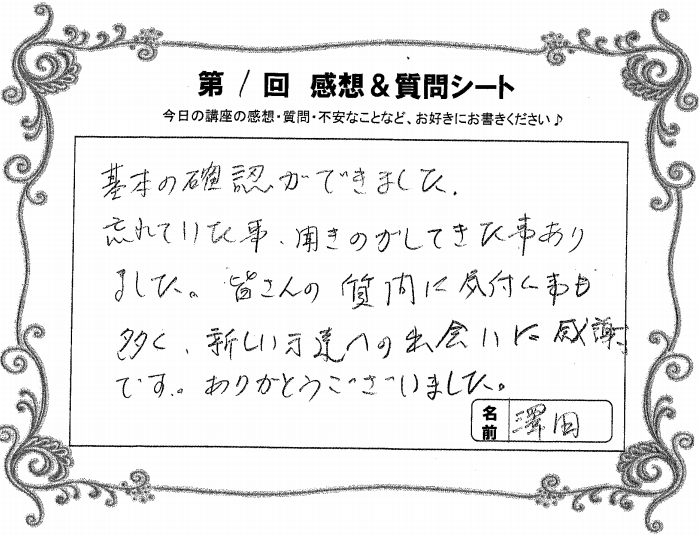 第1回 感想&質問シート
今日の講座の感想・質問・不安なことなど、お好きにお書きください♪
基本の確認ができました。
忘れていた事、聞きのがしてきた事あり
ました。皆さんの質問に気付く事も
多く、新しい方達への出会いに感謝
です。ありがとうございました。
名前 澤田